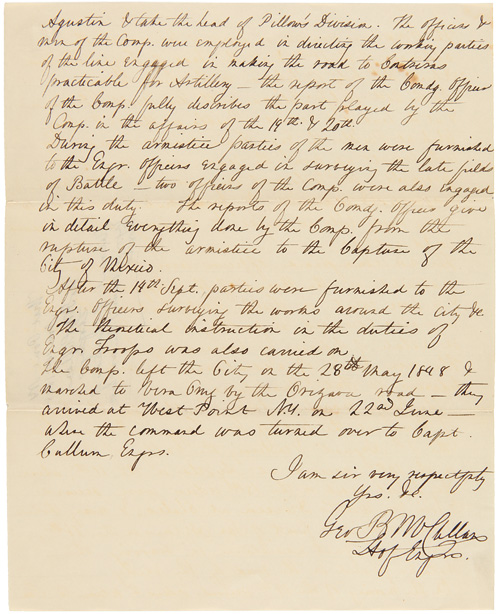 Agustin & take the head of Pillow's Division. The officers &
men of the Comp. were employed in directing the working parties
of the line engaged in making the road to Contreras
practicable for Artillery — the report of the Comdg. Officer
of the Comp. fully describes the part played by the
Comp. in the affairs of the 19th. & 20th.
During the armistice parties of the men were furnished
to the Engr. officers engaged in surveying the late fields
of Battle — two officers of the Comp. were also engaged
in this duty. The reports of the Comdg. Officer give
in detail everything done by the Comp. from the
rupture of the armistice to the Capture of the
City of Mexico.
After the 14th Sept. parties were furnished to the
Engr. Officers surveying the works around the City &c
The theoretical instruction in the duties of
Engr. Troops was also carried on.
The Comp. left the City on the 28th May 1848 &
marched to Vera Cruz by the Orizava road — they
arrived at West Point N.Y. on 22nd June —
when the command was turned over to Capt.
Cullum Engrs.
I am sir very respectfully
Yrs. &c.
Geo B McClellan
Lt of Engrs.